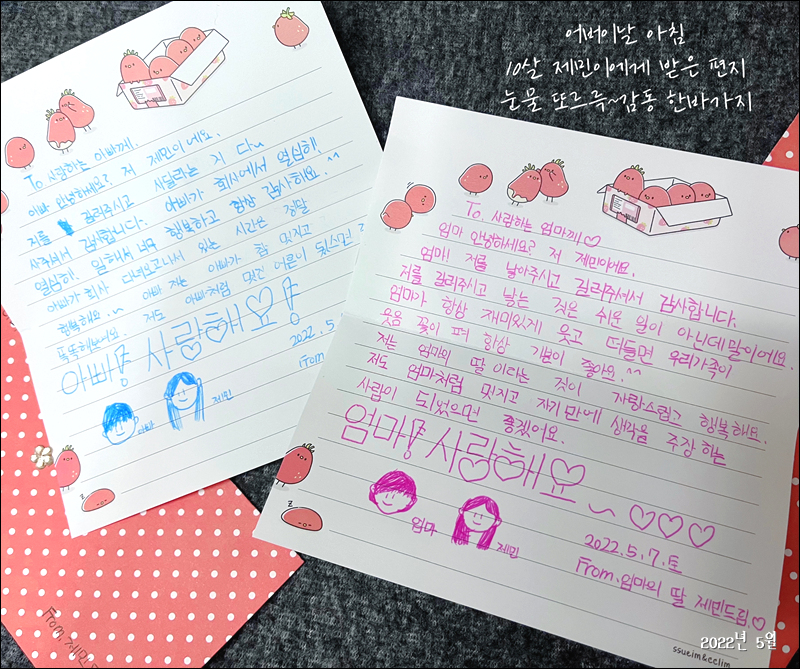 어버이날 아침
10살 제민이에게 받은 편지
눈물 또르륵~감동 한바가지
To 사랑하는 아빠께.
아빠 안녕하세요? 저 제민이에요.
저를 길러주시고 사달라는 거 다~
사주셔서 감사합니다. 아빠가 회사에서 열심히.
열심히. 일해서 너무 행복하고 항상 감사해요. ^^
아빠가 회사 다녀오고나서 있는 시간은 정말
행복해요~ 아빠 저는 아빠가 참 멋지고
똑똑해보여요. 저도 아빠처럼 멋진 어른이 됬으면
아빠! 사랑해요!
2022.5
From
아빠
제민
To 사랑하는 엄마께♡
엄마 안녕하세요? 저 제민이에요.
엄마! 저를 낳아주시고 길러주셔서 감사합니다.
저를 길러주시고 낳는 것은 쉬운 일이 아닌데 말이에요.
엄마가 항상 재미있게 웃고 떠들면 우리가족이
웃음 꽃이 펴 항상 기분이 좋아요. ^^
저는 엄마의 딸 이라는 것이 자랑스럽고 행복해요.
저도 엄마처럼 멋지고 자기만에 생각을 주장 하는
사람이 되었으면 좋겠어요.
엄마! 사랑해요~♡♡♡
엄마
제민
2022.5.7.토
From.엄마의 딸 제민드림.♡
From.제민
ssueim&cclim
2022년 5월